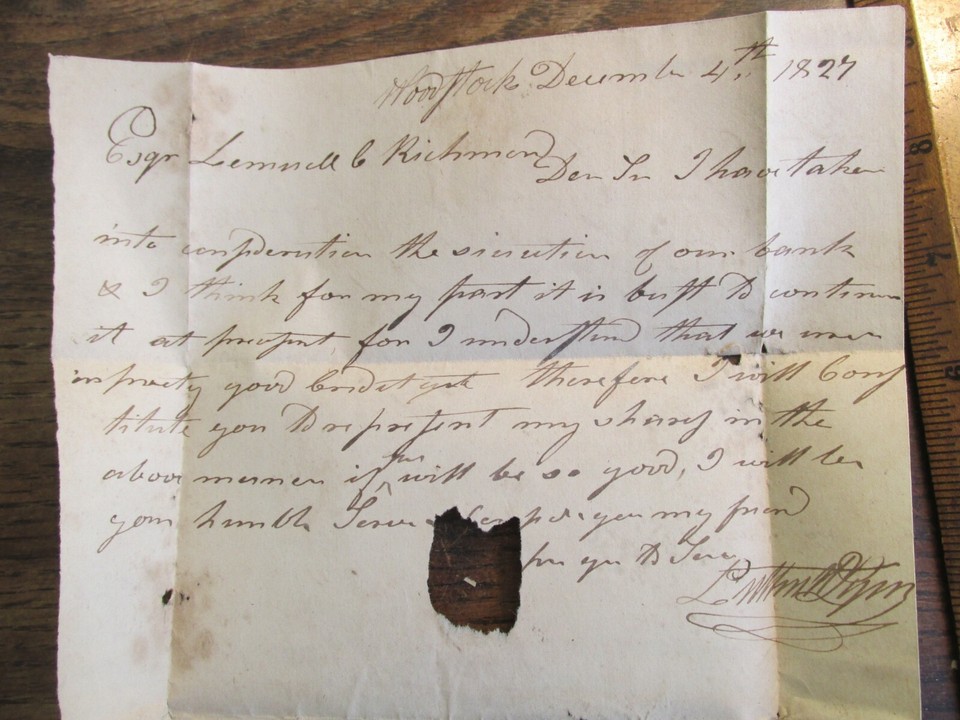 Woodstock December 4th 1827
Esqr Lemuell C Richmond
Dear Sir I have taken
into consideration the sicuetion of our bank
& I think for my part it is best to continue
it at present for I understand that we are
in prety good bridit yet therefore I will Cons
titute you to represent my shares in the
above manner if you will be so good, I will be
your humble you my friend
for you to Serve